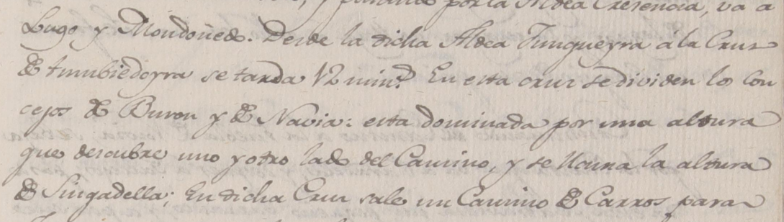 y pasando por la Aldea Cresencia, va a
Lugo y Mondoñedo. Desde la dicha Aldea Funqueyra á la Cruz
de se tarda 12 mins. En esta cruz se dividen los Con
cejos de Buron y de Navia: esta dominada por una altura
que descubre uno y otro lado del Camino, y se llama la altura
de Singadella; En dicha Cruz sale un Camino de Carros para